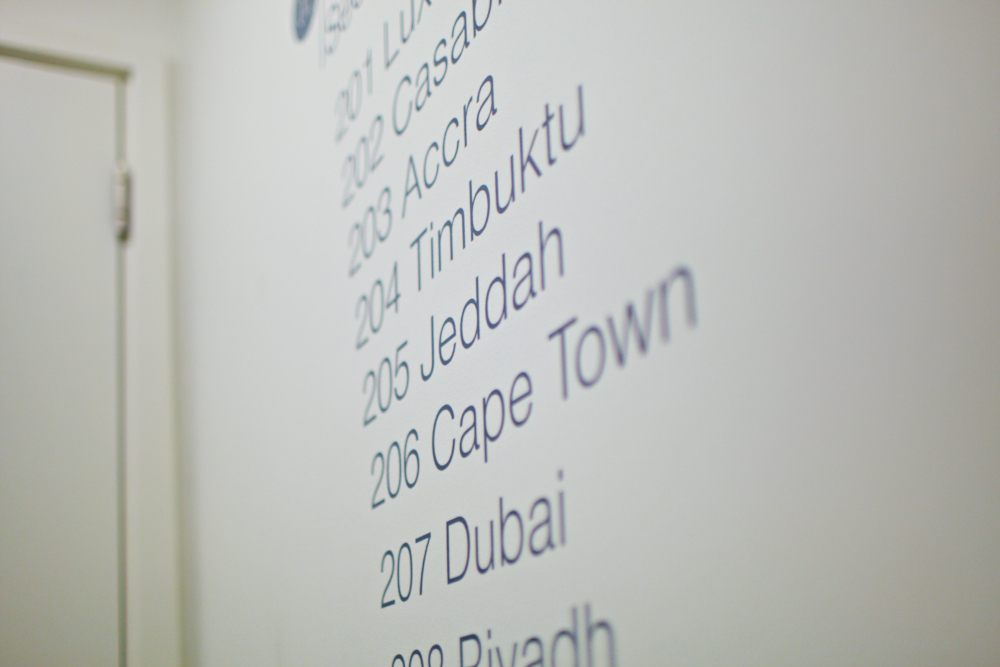 201
202
203 Accra
204 Timbuktu
205 Jeddah
206 Cape Town
207 Dubai
208 Riyadh